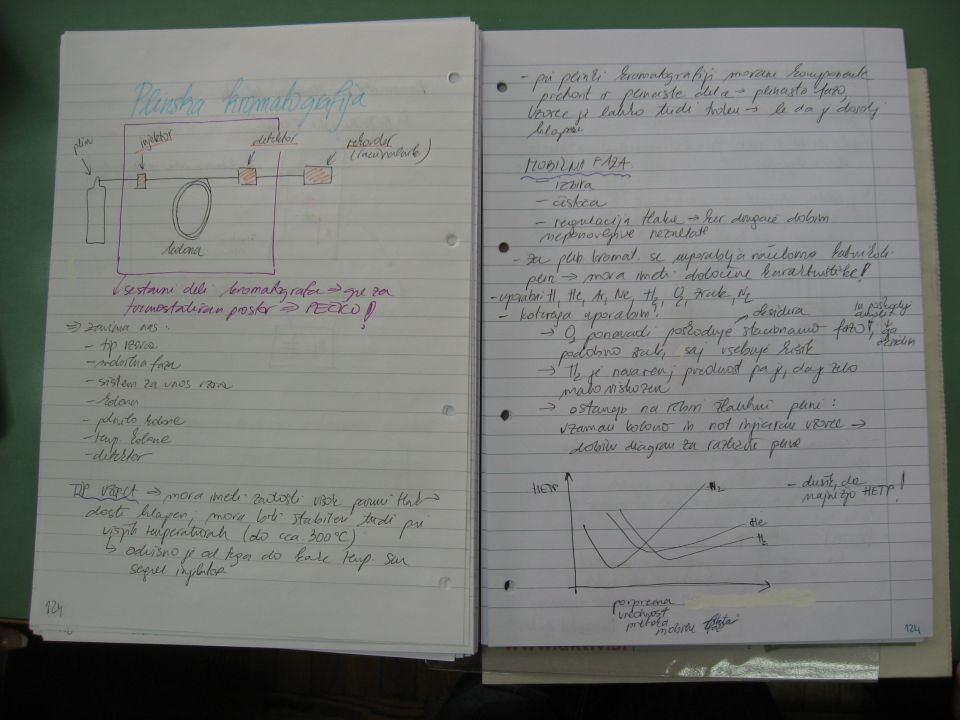 Plinska kromatografija
plin
injektor
detektor
rekorder
(računalnik)
kolona
sestavni deli kromatografa → gre za
termostatiran prostor ⇒ PEČKO!
⇒ zanima nas:
- tip vzorca
- mobilna faza
- sistem za vnos vzorca
- kolona
- polnilo kolone
- temp. kolone
- detektor
→ mora imeti zadosti visok parni tlak →
dosti hlapen, mora biti stabilen tudi pri
višjih temperaturah (do cca. 300°C)
↳ odvisno je od tega do kake temp. sem
segrel injektor
124
- pri plinski kromatografiji morajo komponente
prehajat iz plinaste dela → plinasto fazo,
vzorec je lahko tudi trden → le da je dosti
hlapen
MOBILNA FAZA
- izbira
- čistoča
- regulacija tlaka → ker drugače dobim
neponovljive rezultate
- za plin kromat. se uporablja načeloma katerikoli
plin → mora imeti določene karakteristike!
- uporabni He, Ar, Ne, H2, O2, zrak, N2
- kot uporabim:
oksidira
→ O2 ponavadi poškoduje stacionarno fazo!
podobno zrak, saj vsebuje kisik
→ H2 je nevaren, prednost pa je, da je zelo
malo viskozen
→ ostanejo na izbiri žlahtni plini:
vzamem kolono in not injiciram vzorec →
dobim diagram za različne pline
HETP
N2
He
H2
- do
najnižjo HETP!
povprečna
vrednost
pretoka
mobilne faze
124